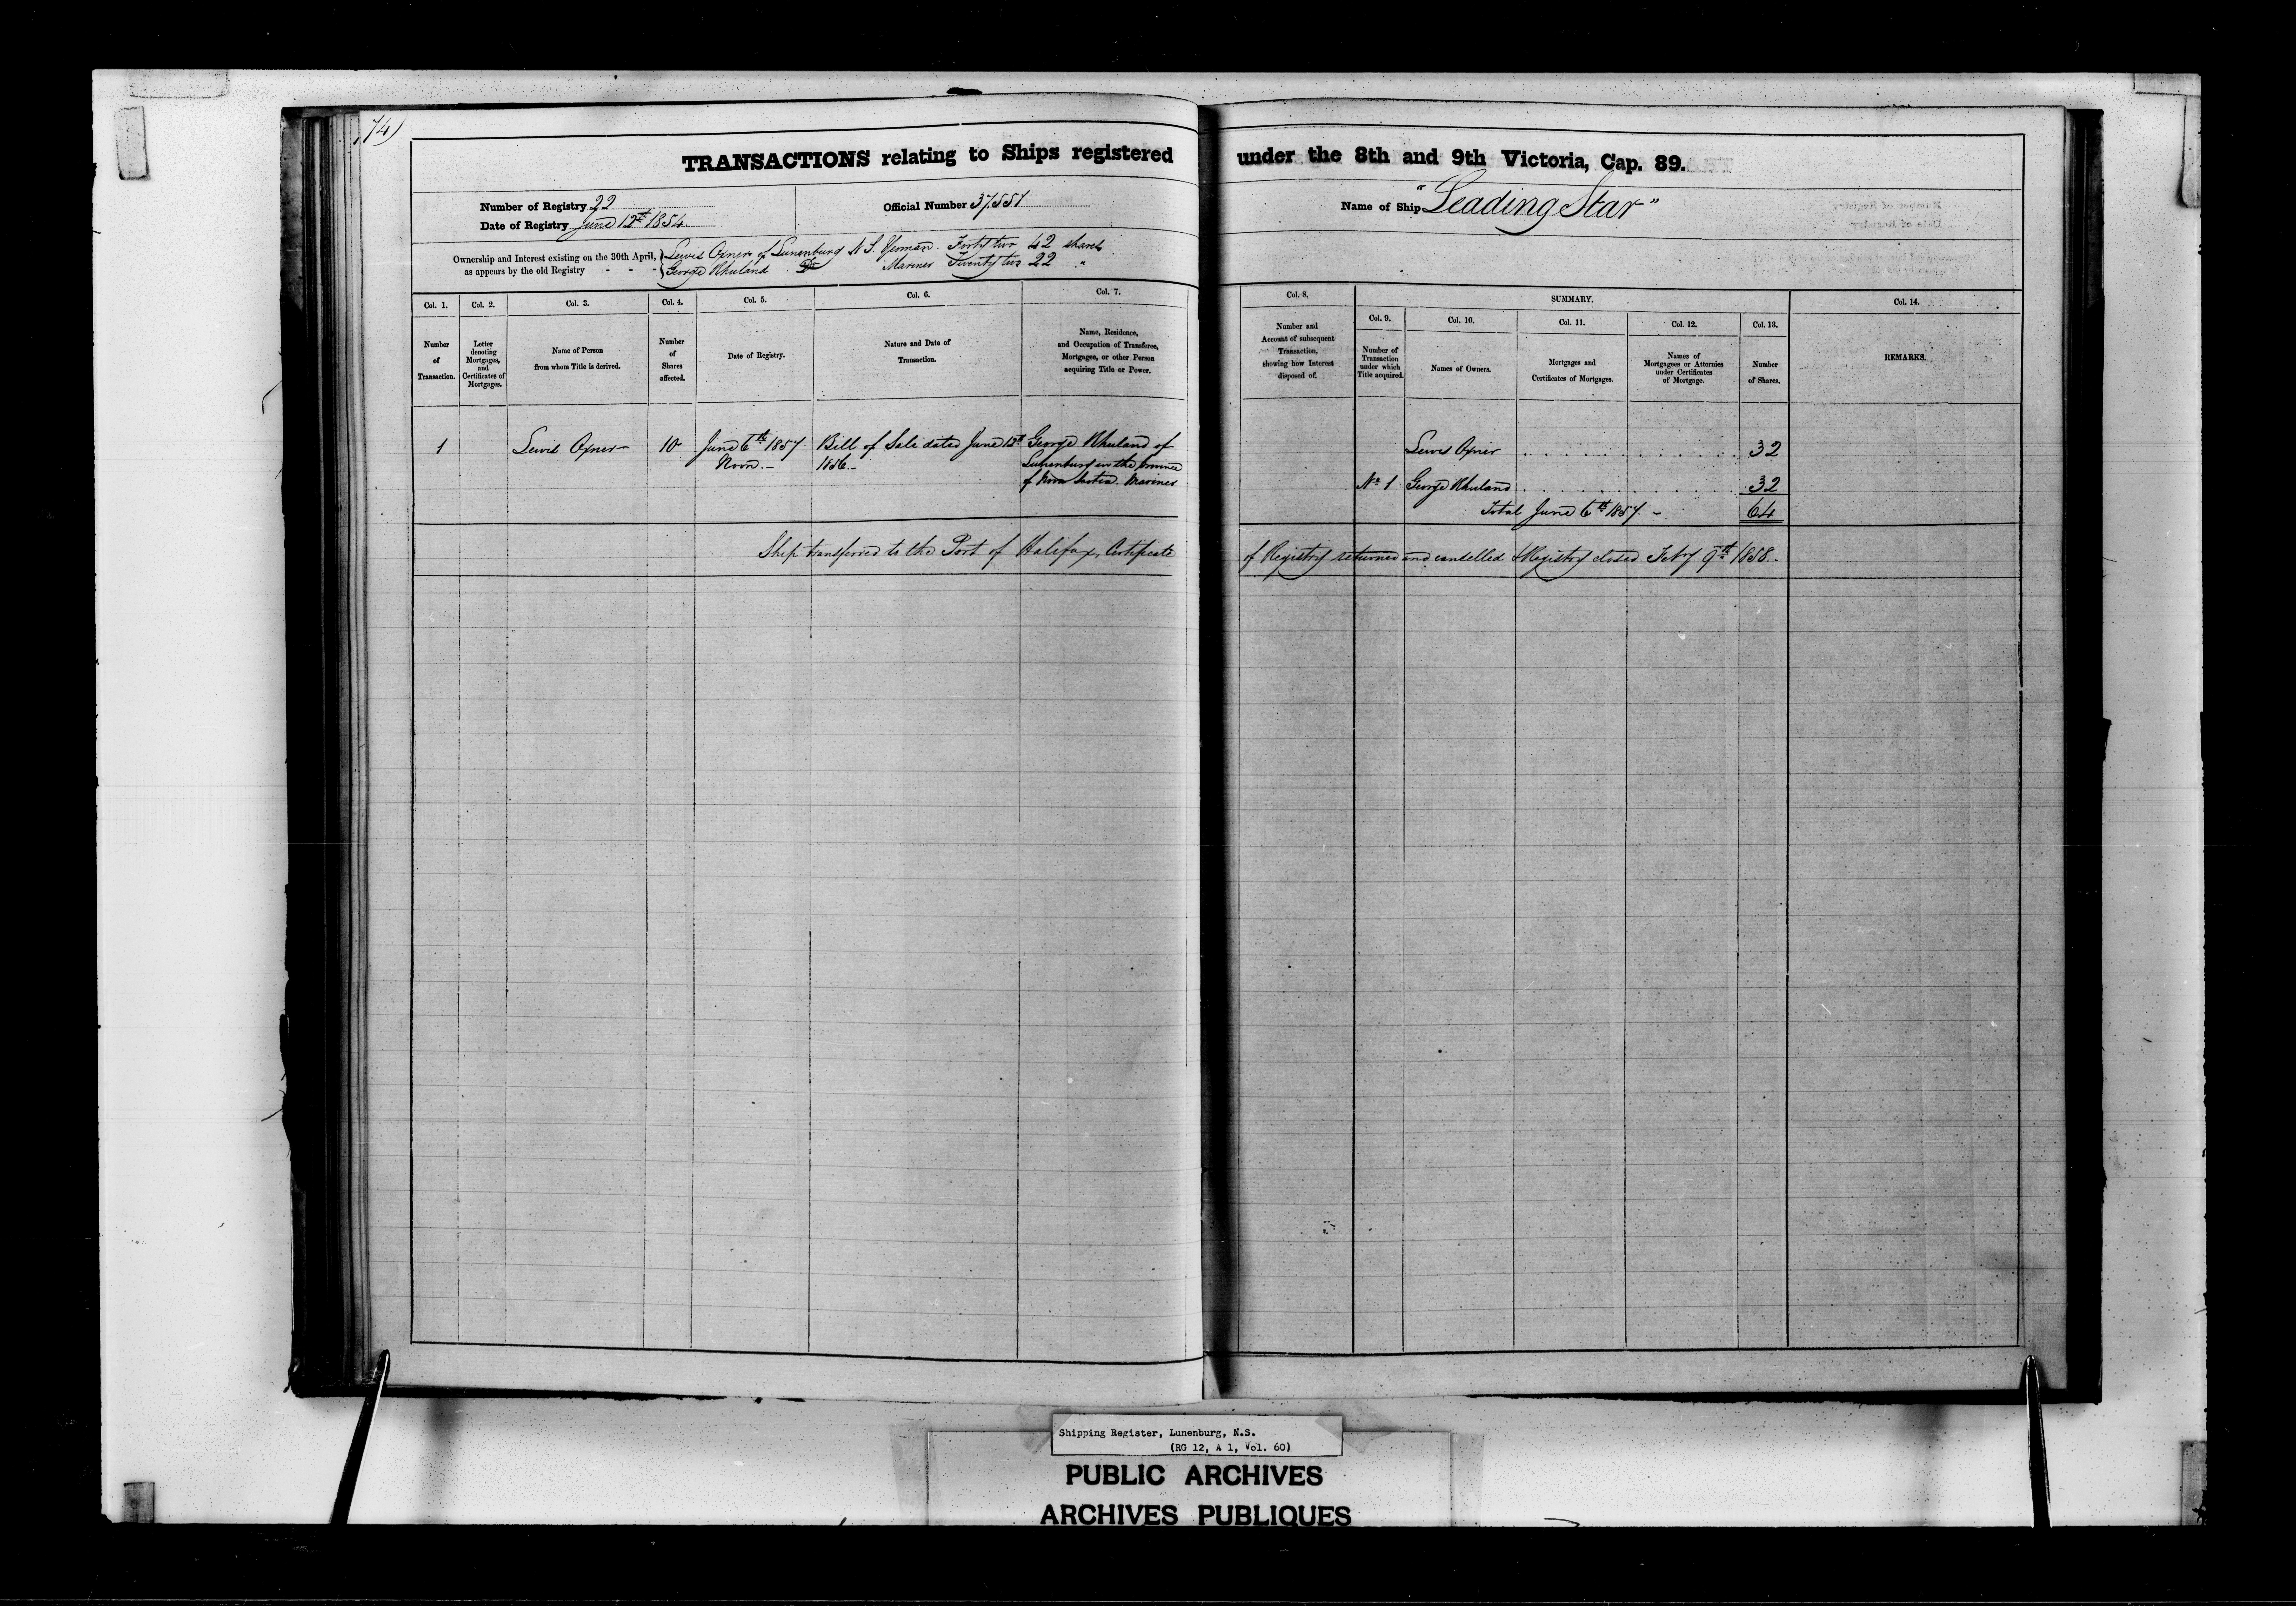 74)
TRANSACTIONS relating to Ships registered under the 8th and 9th Victoria, Cap. 89.
Number of Registry 22
Date of Registry June 12th 1854
Official Number 37551
Name of Ship "Leading Star"
Ownership and Interest existing on the 30th April, as appears by the old Registry - - -
Lewis Oxner of Lunenburg N.S. Yeoman. Forty two 42 shares
George Khuland Do Mariner Twenty two 22 "
Col. 1.
Number of Transaction.
Col. 2.
Letter denoting Mortgages, and Certificates of Mortgages.
Col. 3.
Name of Person from whom Title is derived.
Col. 4.
Number of Shares affected.
Col. 5.
Date of Registry.
Col. 6.
Nature and Date of Transaction.
Col. 7.
Name, Residence, and Occupation of Transferee, Mortgagee, or other Person acquiring Title or Power.
Col. 8.
Number and Account of subsequent Transaction, showing how Interest disposed of.
SUMMARY.
Col. 9.
Number of Transaction under which Title acquired.
Col. 10.
Names of Owners.
Col. 11.
Mortgages and Certificates of Mortgages.
Col. 12.
Names of Mortgagees or Attornies under Certificates of Mortgage.
Col. 13.
Number of Shares.
Col. 14.
REMARKS.
1 Lewis Oxner 10 June 6th 1857 Noon.- Bill of Sale dated June 12th 1856.- George Khuland of Lunenburg in the Province of Nova Scotia. Mariner
Lewis Oxner 32
No 1 George Khuland 32
Total June 6th 1857. - 64
Ship transferred to the Port of Halifax, Certificate of Registry returned and cancelled & Registry closed Feby 9th 1858.-
Shipping Register, Lunenburg, N.S.
(RG 12, A 1, Vol. 60)
PUBLIC ARCHIVES
ARCHIVES PUBLIQUES